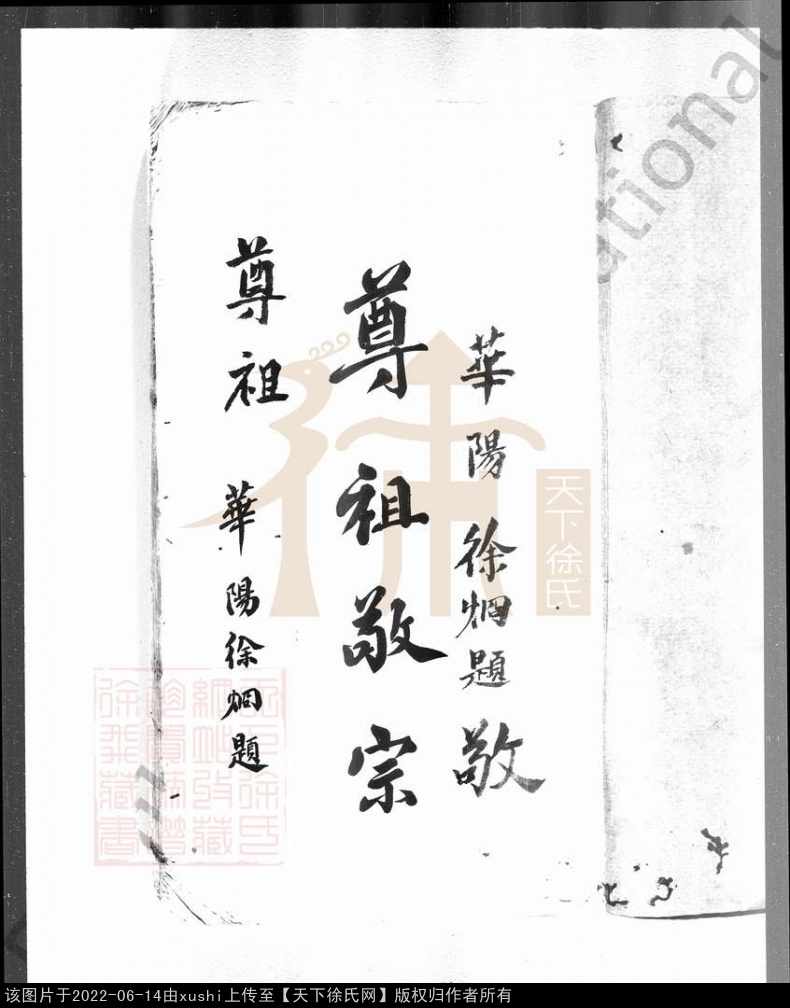 華陽徐烱題 敬
尊祖敬宗
尊祖 華陽徐烱題
天下徐氏
tional
该图片于2022-06-14由xushi上传至【天下徐氏网】版权归作者所有